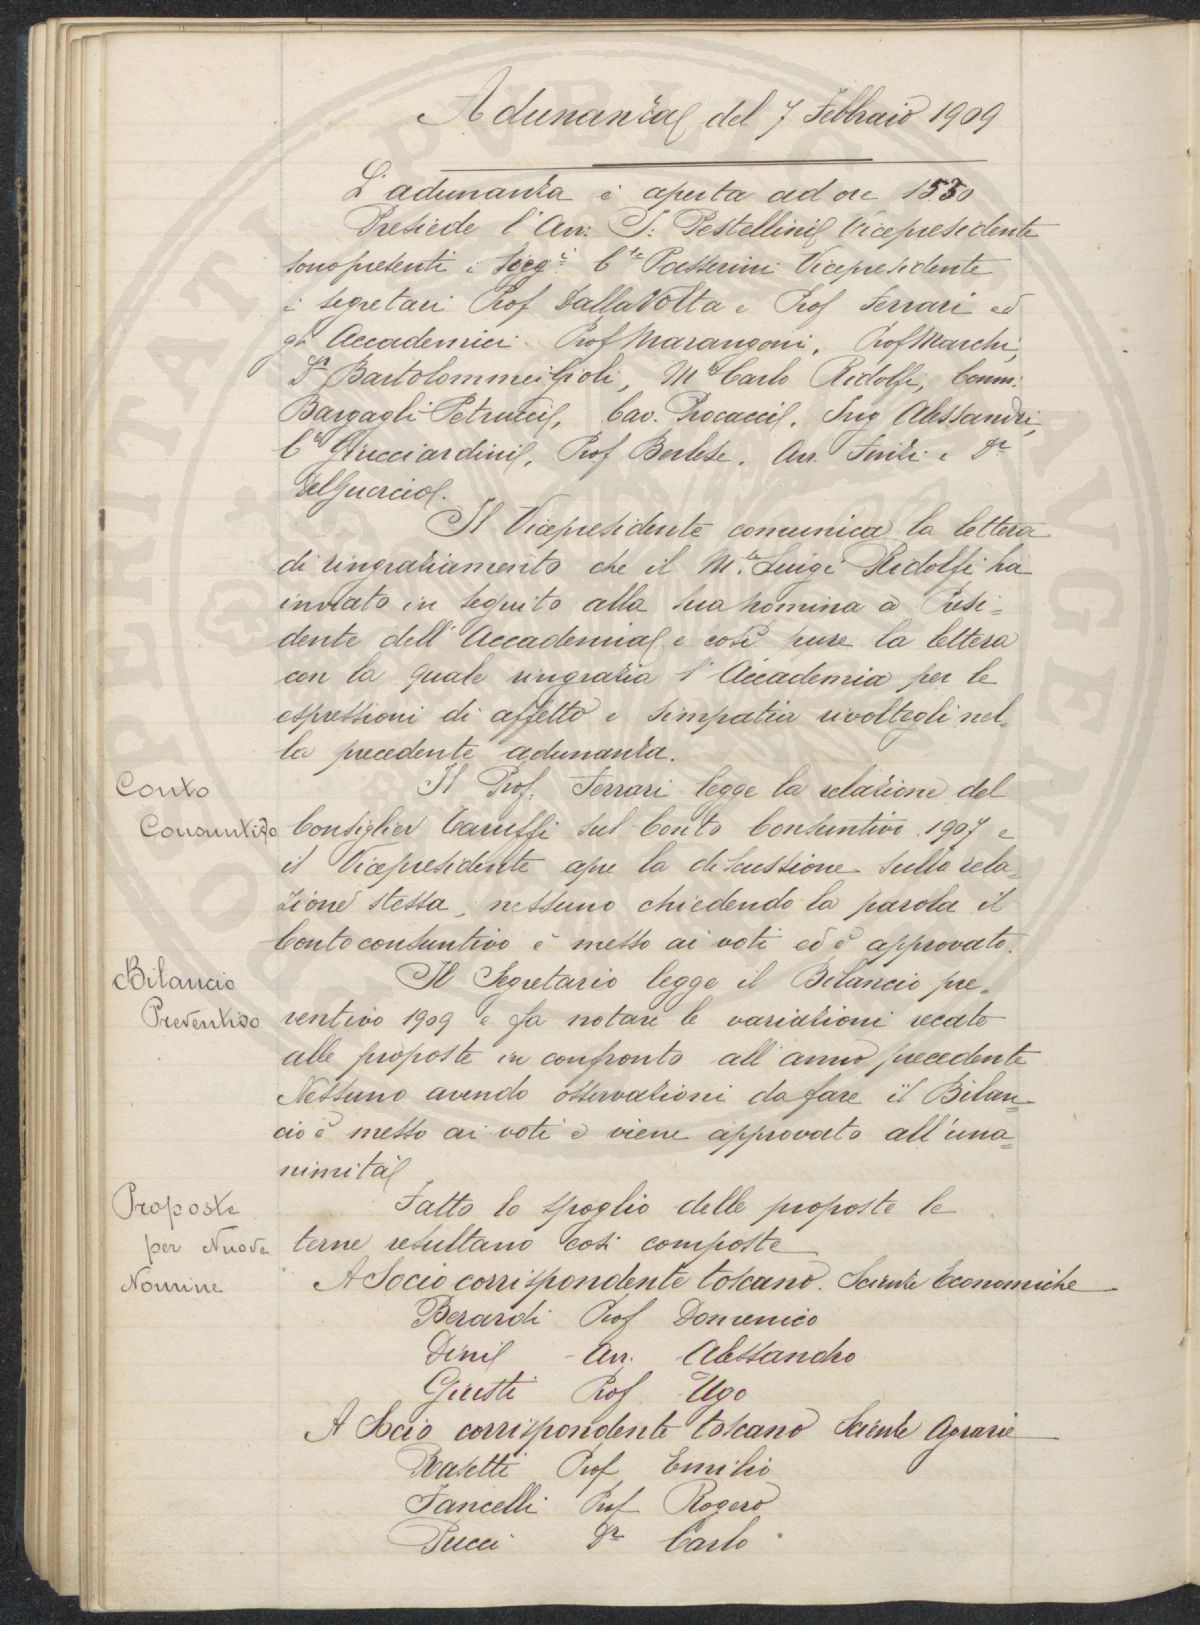 Adunanza del 7 Febbraio 1909
L'adunanza è aperta ad ore 1530
Presiede l'Avv. Pestellini Vicepresidente
sono presenti i Sigg.i C.te Passerini Vicepresidente
i segretari Prof Dalla Volta e Prof Ferrari ed
gli Accademici Prof Marangoni, Prof Marchi,
Dr Bartolommei Gioli, M.se Carlo Ridolfi, Comm.
Bargagli Petrucci, Cav. Procacci, Ing Alessandri,
C.te Guicciardini, Prof Berlese, Avv. e Dr
Del Guercio.
Il Vicepresidente comunica la lettera
di ringraziamento che il M.se Luigi Ridolfi ha
inviato in seguito alla sua nomina a Presi-
dente dell'Accademia e così pure la lettera
con la quale ringrazia l'Accademia per le
espressioni di affetto e simpatia rivoltegli nel-
la precedente adunanza.
Conto
Consuntivo
Il Prof. Ferrari legge la relazione del
Consiglier Caruffi sul Conto Consuntivo 1907 e
il Vicepresidente apre la discussione sulla rela-
zione stessa, nessuno chiedendo la parola il
Conto consuntivo è messo ai voti ed è approvato.
Bilancio
Preventivo
Il Segretario legge il Bilancio pre-
ventivo 1909 e fa notare le variazioni recate
alle proposte in confronto all'anno precedente
Nessuno avendo osservazioni da fare il Bilan=
cio è messo ai voti e viene approvato all'una=
nimità
Proposte
per Nuove
Nomine
Fatto lo spoglio delle proposte le
terne resultano così composte
A Socio corrispondente toscano. Scienze Economiche
Berardi Prof Domenico
Dini Avv. Alessandro
Giusti Prof Ugo
A Socio corrispondente toscano Scienze Agrarie
Rasetti Prof Emilio
Fancelli Prof Rogero
Pucci Dr Carlo